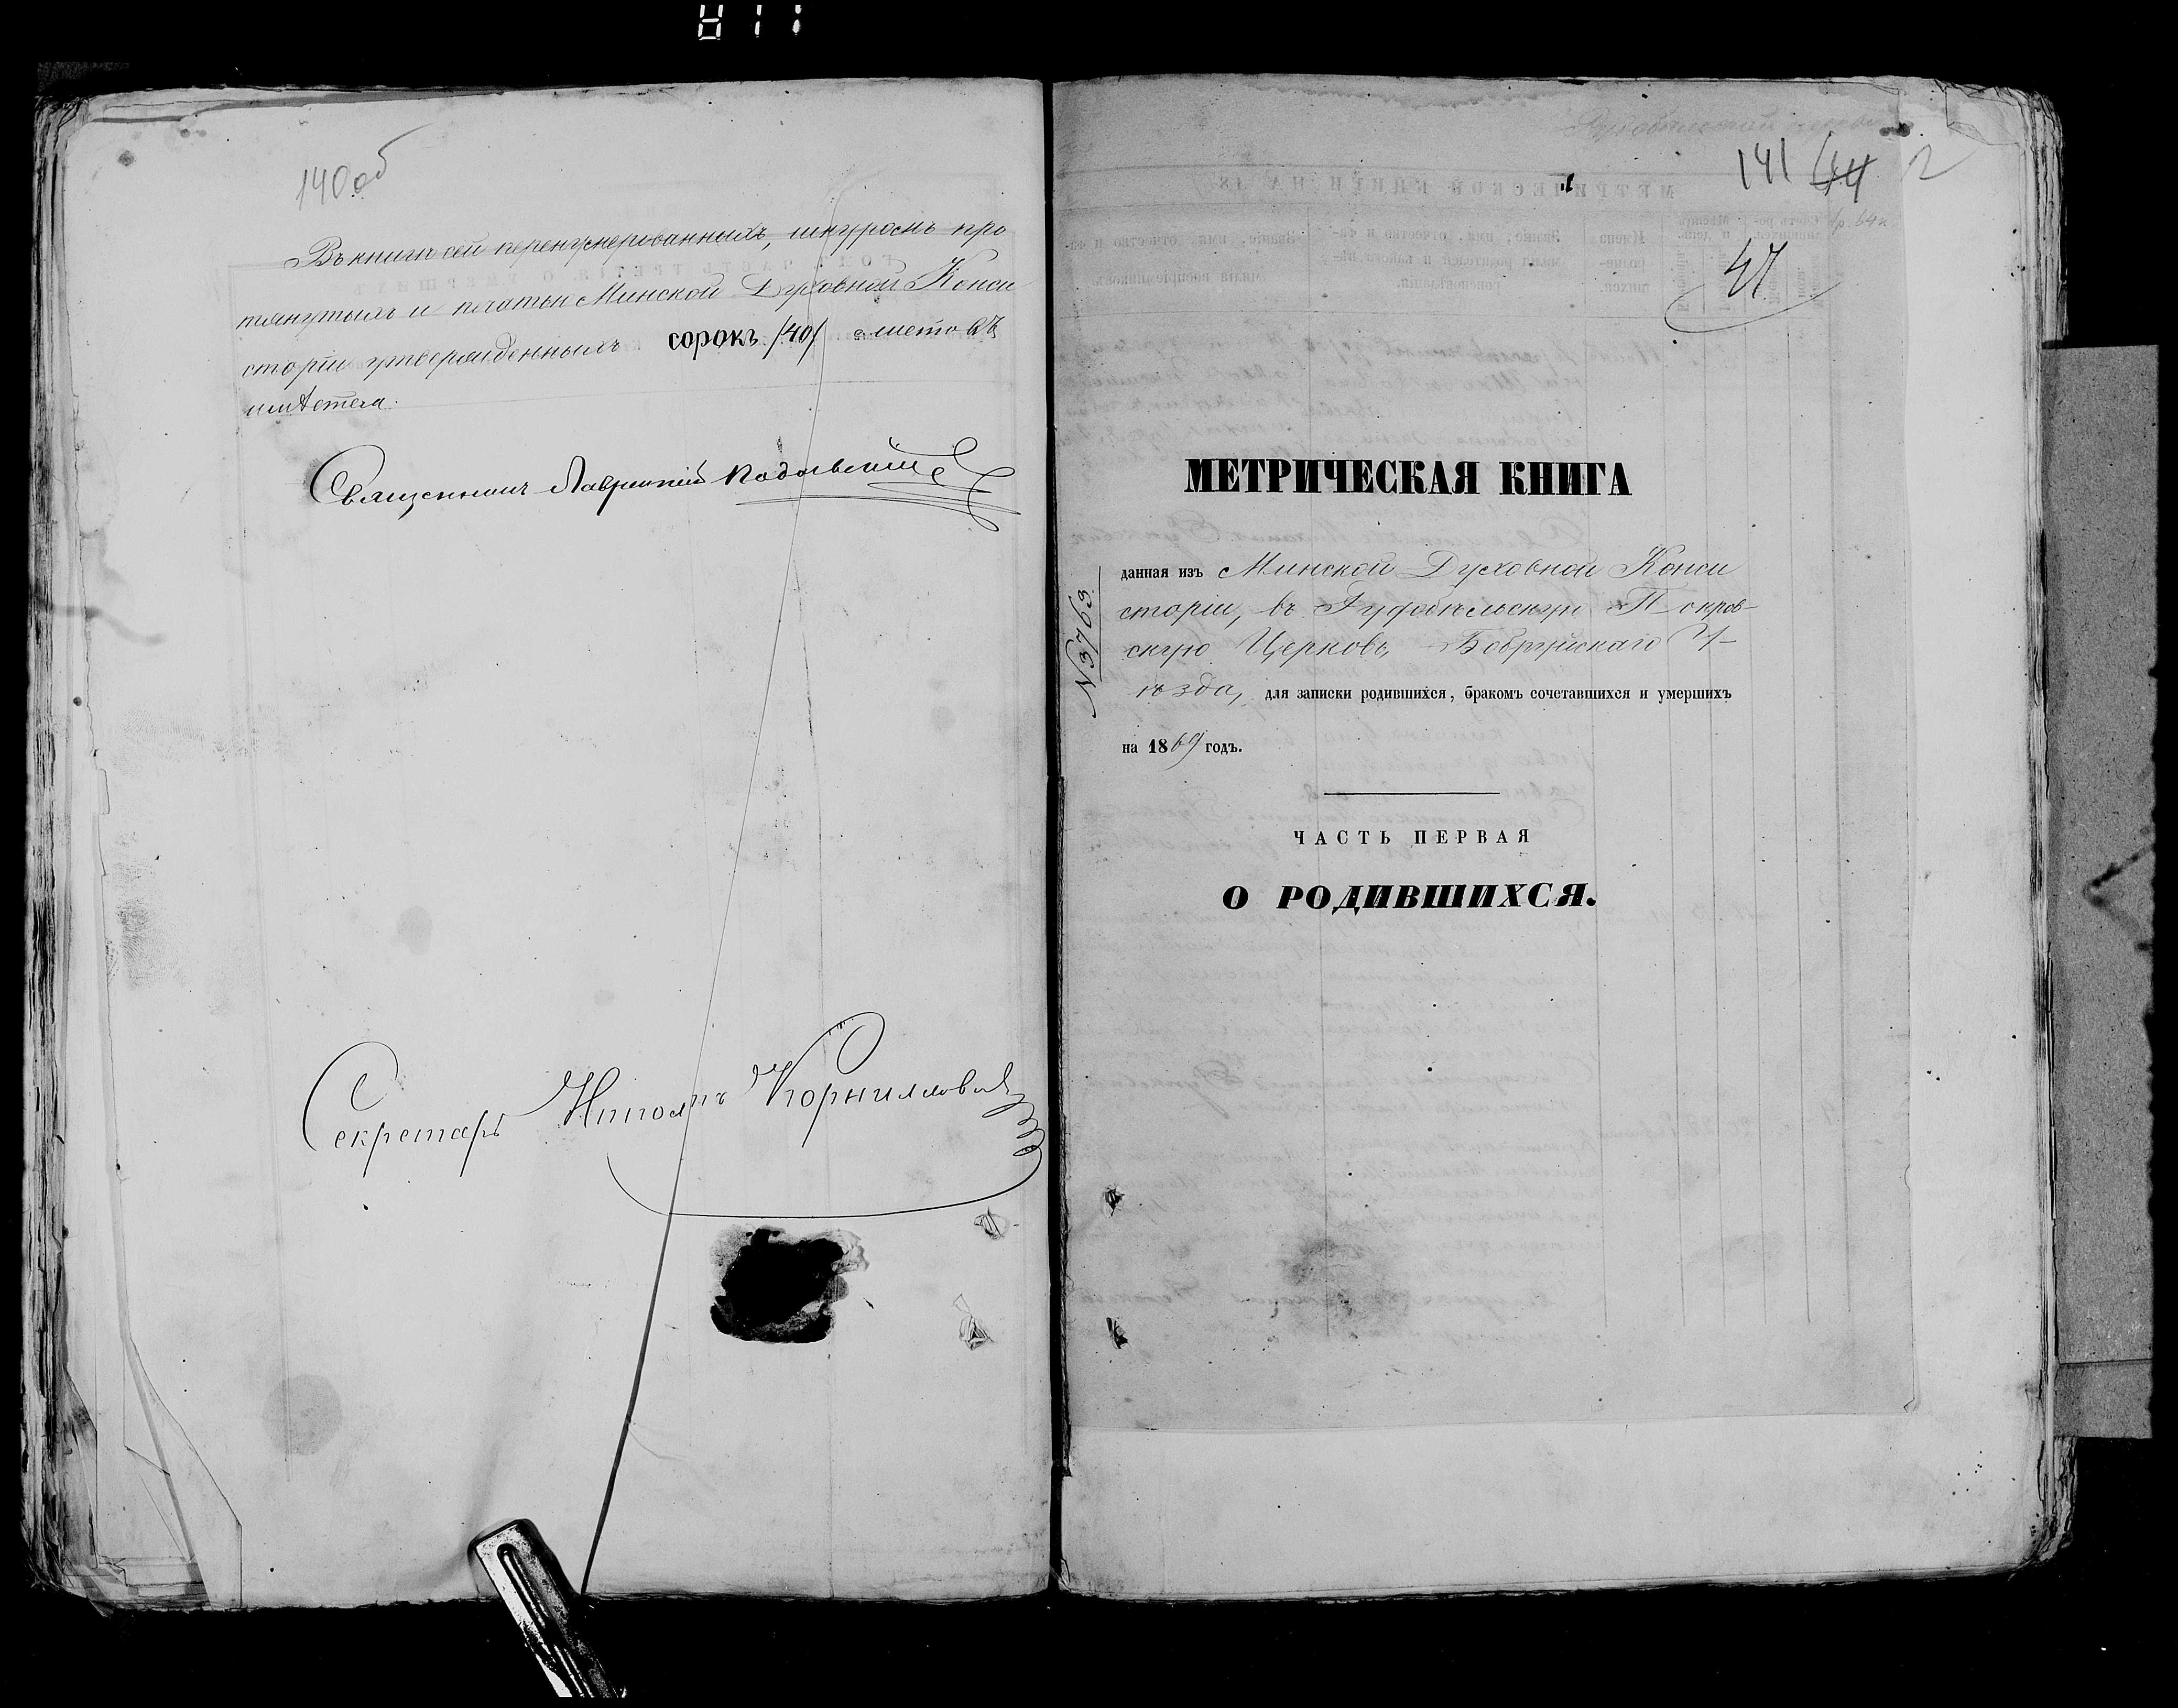 140об
Въ книгѣ сей перенумерованныхъ, шнуромъ про
тянутыхъ и печатью Минской Духовной Конси
сторіи утвержденныхъ сорокъ /40/ листовъ
имѣется.
Священникъ Лаврентій
Секретарь Корниловичъ
141 44 2
47
МЕТРИЧЕСКАЯ КНИГА
№3763
данная изъ Минской Духовной Конси
сторіи, въ Рудобѣльскую Покров-
скую Церковь, Бобруйскаго У-
ѣзда, для записки родившихся, бракомъ сочетавшихся и умершихъ
на 1869 годъ.
ЧАСТЬ ПЕРВАЯ
О РОДИВШИХСЯ.